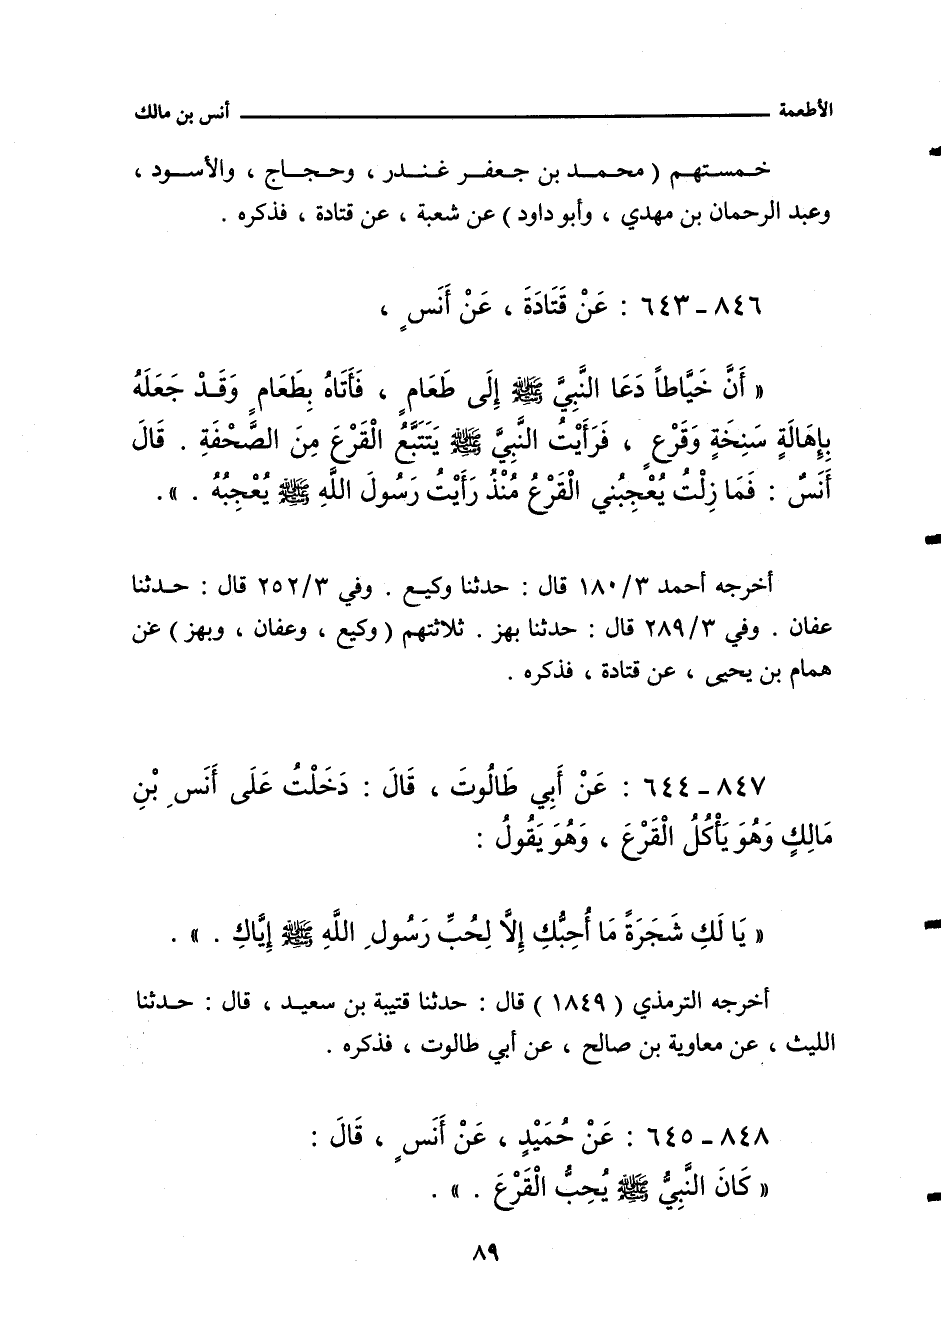 الأطعمة ــــــــــــــــــــ أنس بن مالك
خمستهم ( محمد بن جعفر غندر ، وحجاج ، والأسود ،
وعبد الرحمان بن مهدي ، وأبو داود ) عن شعبة ، عن قتادة ، فذكره .
٨٤٦ ـ ٦٤٣ : عَنْ قَتَادَةَ ، عَنْ أَنَسٍ ،
« أَنَّ خَيَّاطاً دَعَا النَّبِيَّ ﷺ إِلَى طَعَامٍ ، فَأَتَاهُ بِطَعَامٍ وَقَدْ جَعَلَهُ
بِإِهَالَةٍ سَنِخَةٍ وَقَرْعٍ ، فَرَأَيْتُ النَّبِيَّ ﷺ يَتَتَبَّعُ الْقَرْعَ مِنَ الصَّحْفَةِ . قَالَ
أَنَسٌ : فَمَا زِلْتُ يُعْجِبُنِي الْقَرْعُ مُنْذُ رَأَيْتُ رَسُولَ اللَّهِ ﷺ يُعْجِبُهُ . » .
أخرجه أحمد ١٨٠/٣ قال : حدثنا وكيع . وفي ٢٥٢/٣ قال : حدثنا
عفان . وفي ٢٨٩/٣ قال : حدثنا بهز . ثلاثتهم ( وكيع ، وعفان ، وبهز ) عن
همام بن يحيى ، عن قتادة ، فذكره .
٨٤٧ ـ ٦٤٤ : عَنْ أَبِي طَالُوتَ ، قَالَ : دَخَلْتُ عَلَى أَنَسِ بْنِ
مَالِكٍ وَهُوَ يَأْكُلُ الْقَرْعَ ، وَهُوَ يَقُولُ :
« يَا لَكِ شَجَرَةً مَا أُحِبُّكِ إِلَّا لِحُبِّ رَسُولِ اللَّهِ ﷺ إِيَّاكِ . » .
أخرجه الترمذي ( ١٨٤٩ ) قال : حدثنا قتيبة بن سعيد ، قال : حدثنا
الليث ، عن معاوية بن صالح ، عن أبي طالوت ، فذكره .
٨٤٨ ـ ٦٤٥ : عَنْ حُمَيْدٍ ، عَنْ أَنَسٍ ، قَالَ :
« كَانَ النَّبِيُّ ﷺ يُحِبُّ الْقَرْعَ . » .
٨٩